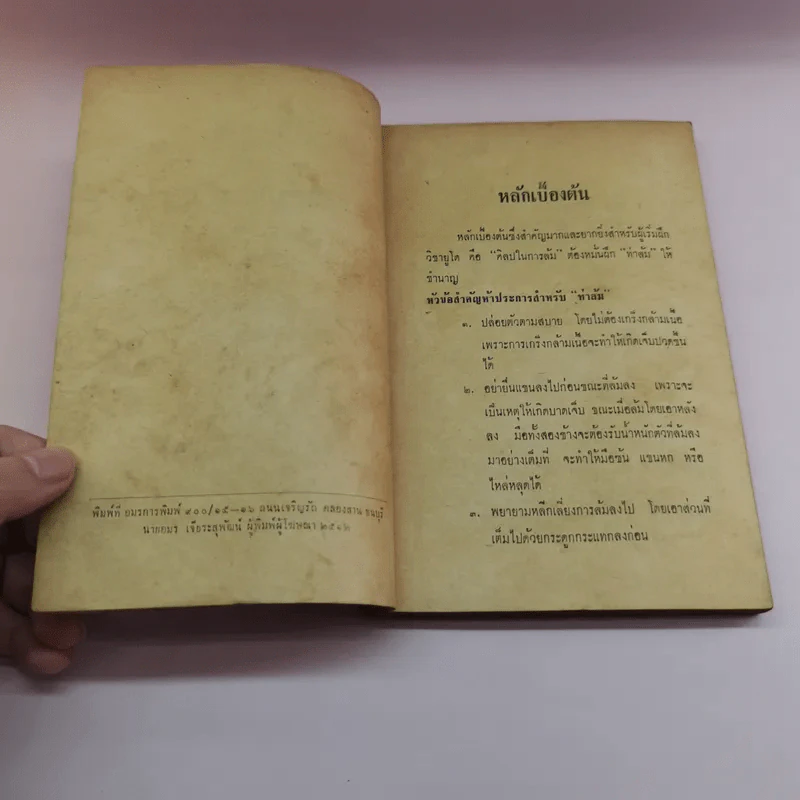 พิมพ์ที่ อมรการพิมพ์ ๔๐๐/๑๕—๑๖ ถนนเจริญรัถ คลองสาน ธนบุรี
นายอมร เจียระสุพัฒน์ ผู้พิมพ์ผู้โฆษณา ๒๕๑๒
หลักเบื้องต้น
หลักเบื้องต้นซึ่งสำคัญมากและยากยิ่งสำหรับผู้เริ่มฝึก
วิชายูโด คือ "ศิลปในการล้ม" ต้องหมั่นฝึก "ท่าล้ม" ให้
ชำนาญ
หัวข้อสำคัญห้าประการสำหรับ "ท่าล้ม"
๑. ปล่อยตัวตามสบาย โดยไม่ต้องเกร็งกล้ามเนื้อ
เพราะการเกร็งกล้ามเนื้อจะทำให้เกิดเจ็บปวดขึ้น
ได้
๒. อย่ายื่นแขนลงไปก่อนขณะที่ล้มลง เพราะจะ
เป็นเหตุให้เกิดบาดเจ็บ ขณะเมื่อล้มโดยเอาหลัง
ลง มือทั้งสองข้างจะต้องรับน้ำหนักตัวที่ล้มลง
มาอย่างเต็มที่ จะทำให้มือซ้น แขนหก หรือ
ไหล่หลุดได้
๓. พยายามหลีกเลี่ยงการล้มลงไป โดยเอาส่วนที่
เต็มไปด้วยกระดูกกระแทกลงก่อน